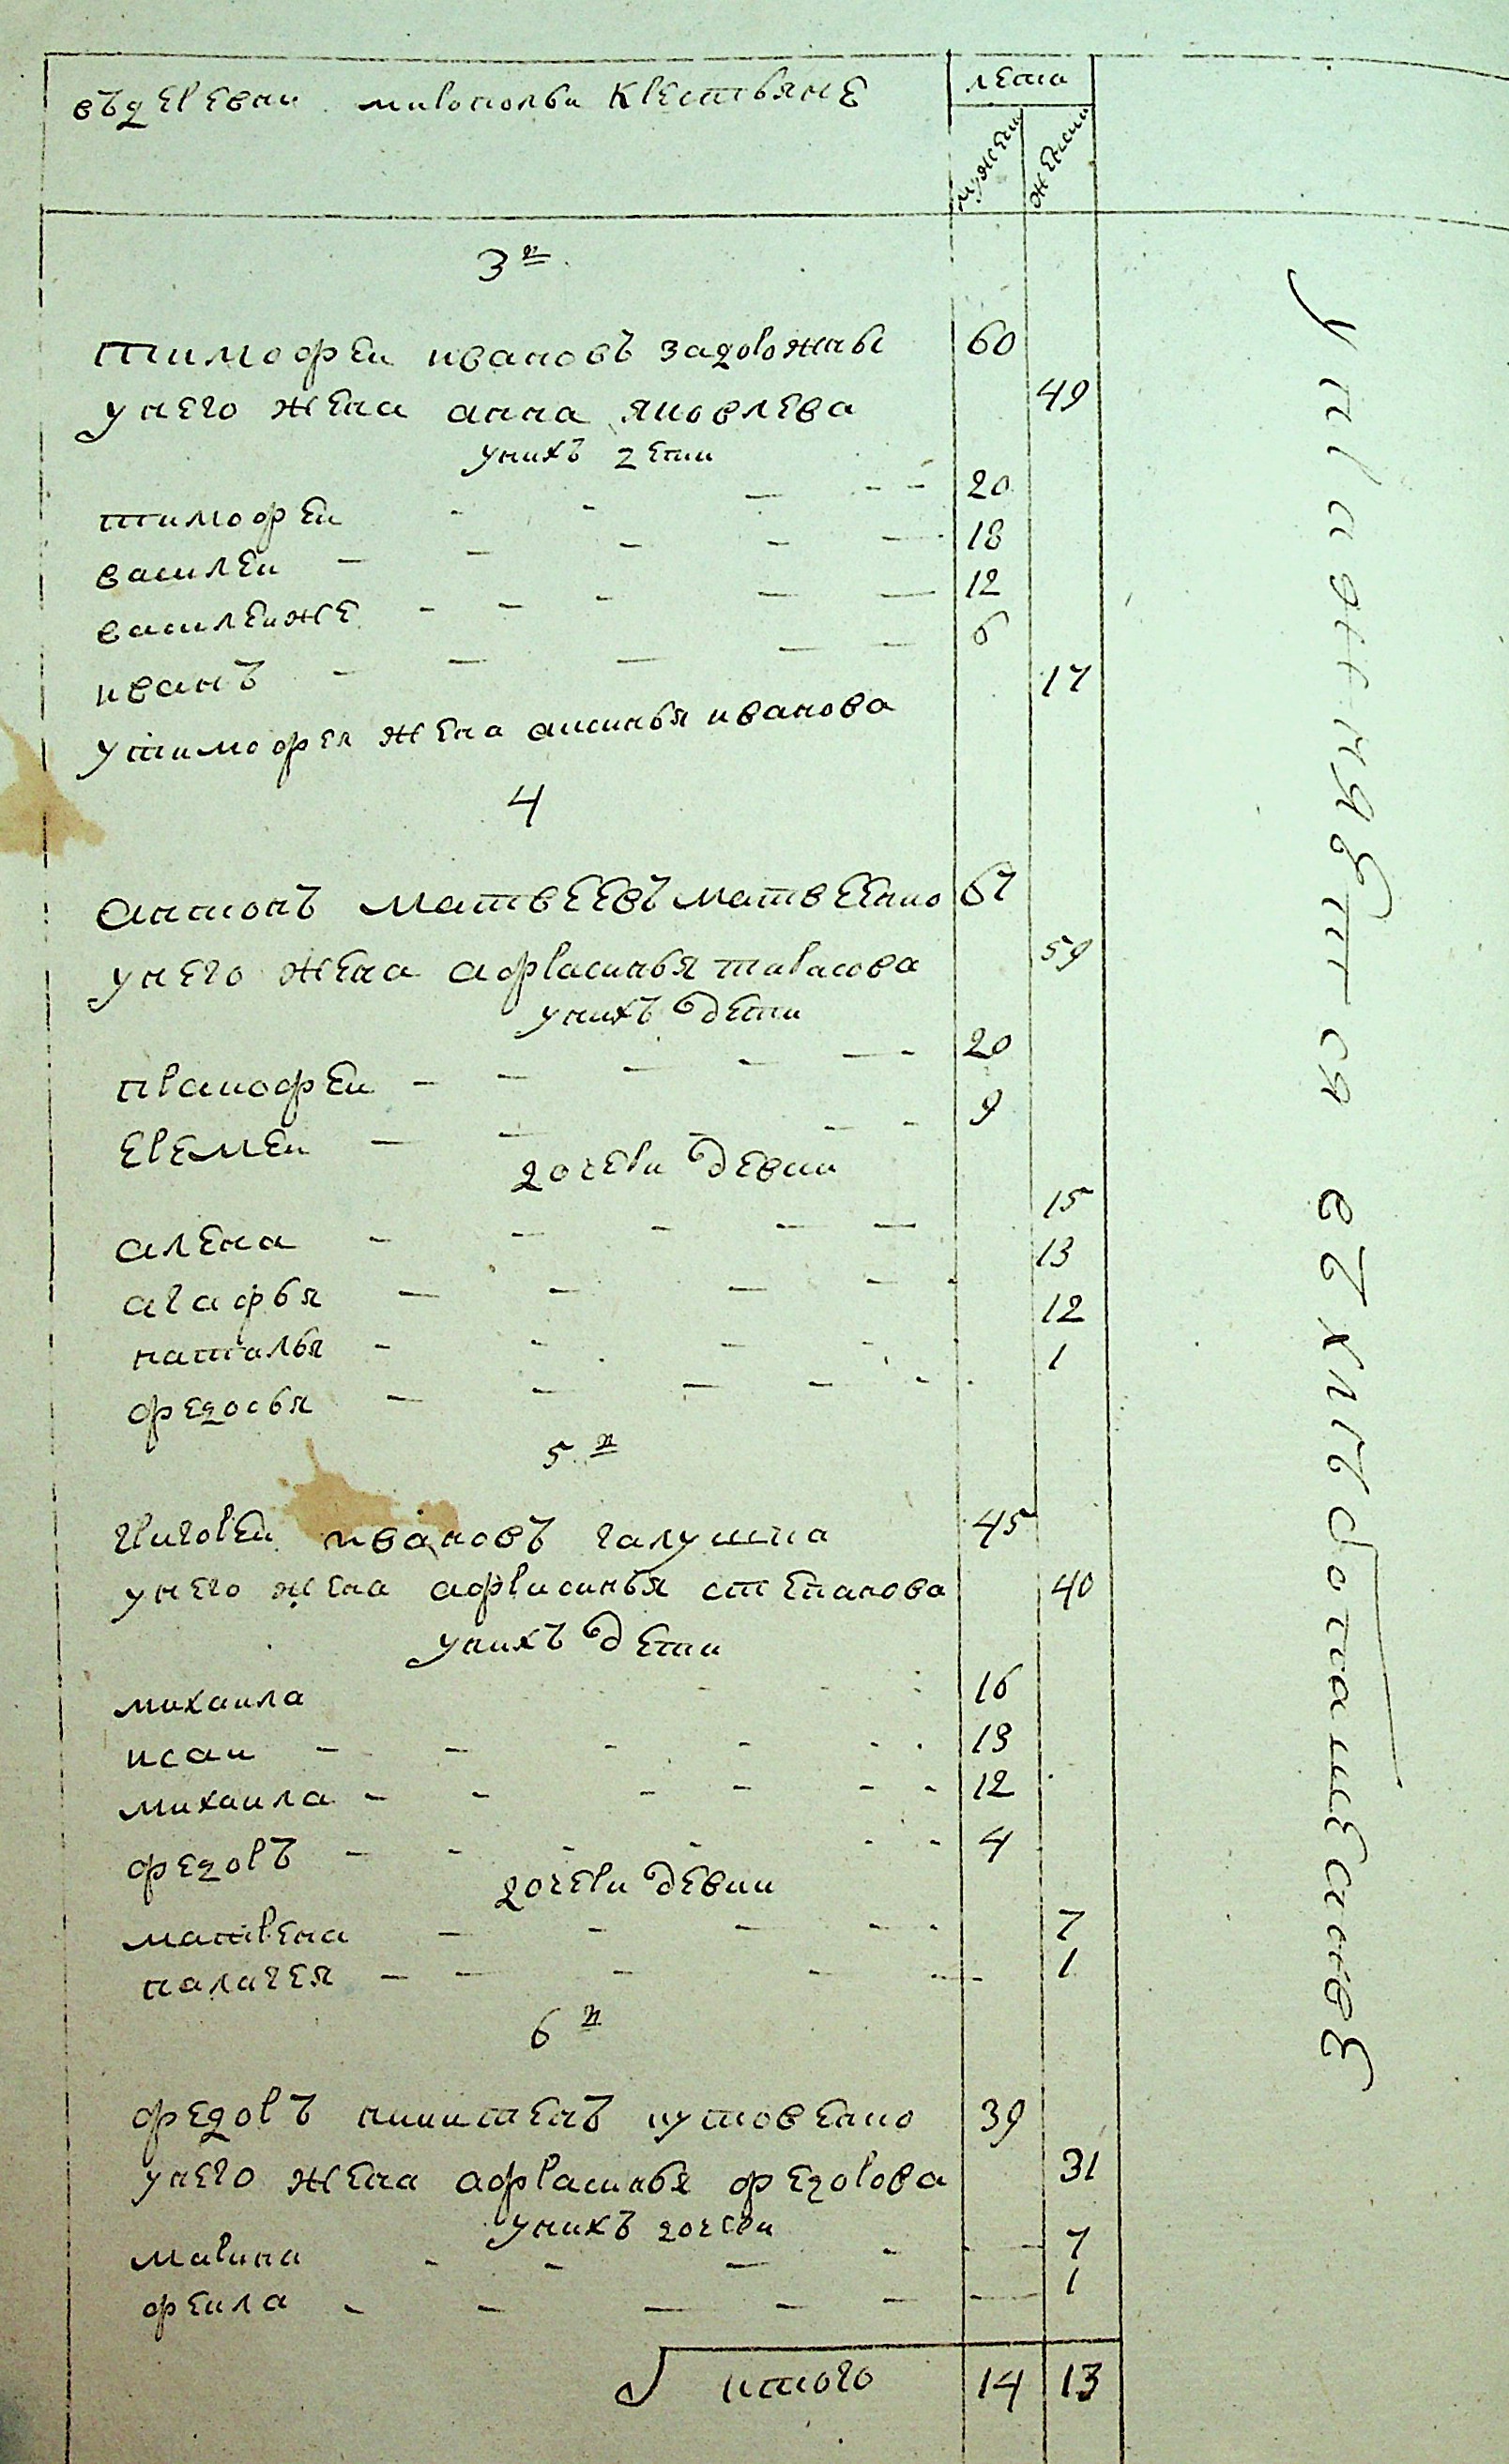 въдеревни миропольи крестьяне
лета
мужеск
женски
3й
тимофеи ивановъ задорожны 60
унего жена анна яковлева 49
унихъ дети
тимофеи 20
василеи 18
василеиже 12
иванъ 6
утимофея жена аксинья иванова 17
4
антонъ матвеевъ матвеенко 67
унего жена афрасинья тарасова 59
унихъ дети
пракофеи 20
еремеи 9
дочери девки
алена 15
агафья 13
наталья 12
федосья 1
5й
григореи ивановъ галушка 45
унего жена афрасинья степанова 40
унихъ дети
михаила 16
исаи 13
михаила 12
федоръ 4
дочери девки
матрена 7
палагея 1
6й
федоръ никитенъ кутовенко 39
унего жена афрасинья федорова 31
унихъ дочери
марина 7
феила 1
итого 14 13